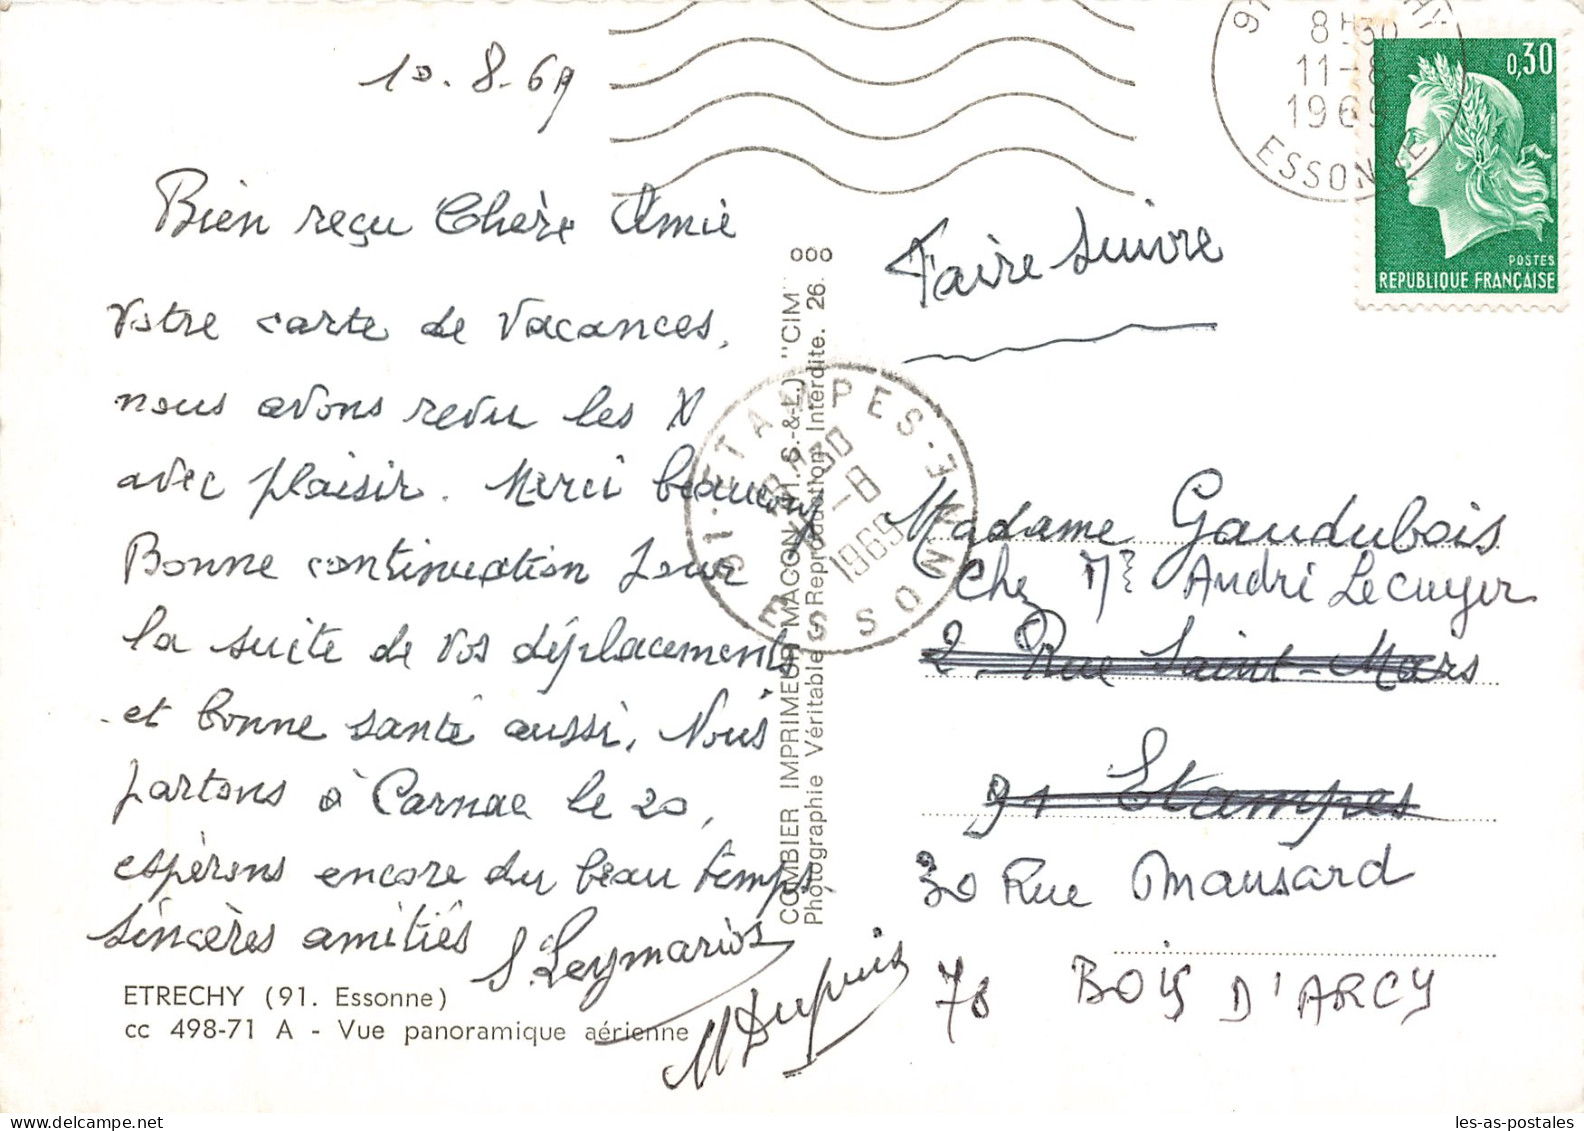 10.8.69
Bien reçu Chère Amie
votre carte de vacances,
nous avons revu les X
avec plaisir. Merci beaucoup
Bonne continuation pour
la suite de vos déplacements
et bonne santé aussi. Nous
partons à Carnac le 20,
espérons encore du beau temps.
Sincères amitiés S. Leymarios
M Dupuis
ETRECHY (91. Essonne)
cc 498-71 A - Vue panoramique aérienne
COMBIER IMPRIMEUR MACON (S.-&-L.) "CIM"
Photographie Véritable Reproduction Interdite. 26.
91 ETAMPES
-8
1969
ESSONNE
8H30
11-8
1969
ESSONNE
0,30
POSTES
REPUBLIQUE FRANÇAISE
Faire suivre
Madame Gaudubois
Chez Mr André Lecuyer
2 Rue Saint-Mars
91 Etampes
30 Rue Mansard
78 BOIS D'ARCY
les-as-postales.com